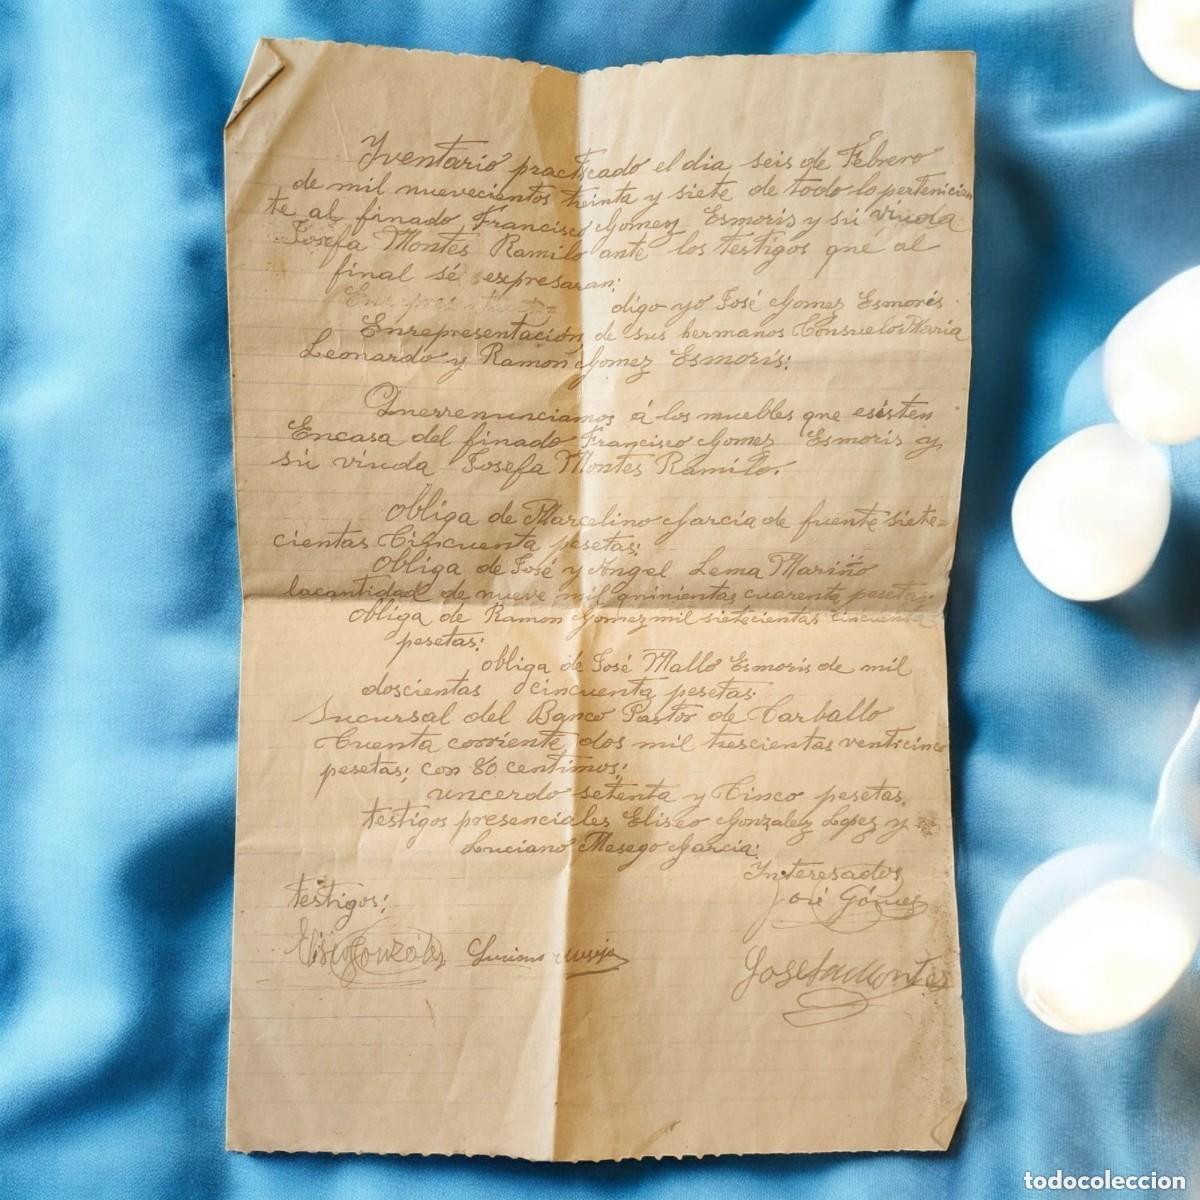 Yventario practicado el dia seis de Febrero
de mil nuevecientos treinta y siete de todo lo pertenicien
te al finado Francisco Gomez Esmoris y sú viuda
Josefa Montes Ramilo ante los testigos qué al
final sé expresaran:
digo yo José Gomez Esmorís
Enrepresentación de sus hermanos Consuelo Maria
Leonardo y Ramon Gomez Esmorís:
Querrenunciamos á los muebles que esisten
Encasa del finado Francisco Gomez Esmoris y
sú viuda Josefa Montes Ramilo.
Obliga de Marcelino Garcia de fuente siete=
cientas Cincuenta pesetas:
Obliga de José y Angel Lema Mariño
lacantidad de nueve mil quinientas cuarenta pesetas:
Obliga de Ramon Gomez mil sietecientas cincuenta
pesetas:
obliga de José Mallo Esmoris de mil
doscientas cincuenta pesetas.
Sucursal del Banco Pastor de Carballo
Cuenta corriente, dos mil trescientas venticinco
pesetas; con 80 centimos:
uncerdo setenta y Cinco pesetas.
testigos presenciales Eliseo Gonzalez Lopez y
Luciano Mesego Garcia:
Interesados
testigos:
José Gómez
Eliseo González Luciano Mesejo
Josefa Montes
todocoleccion